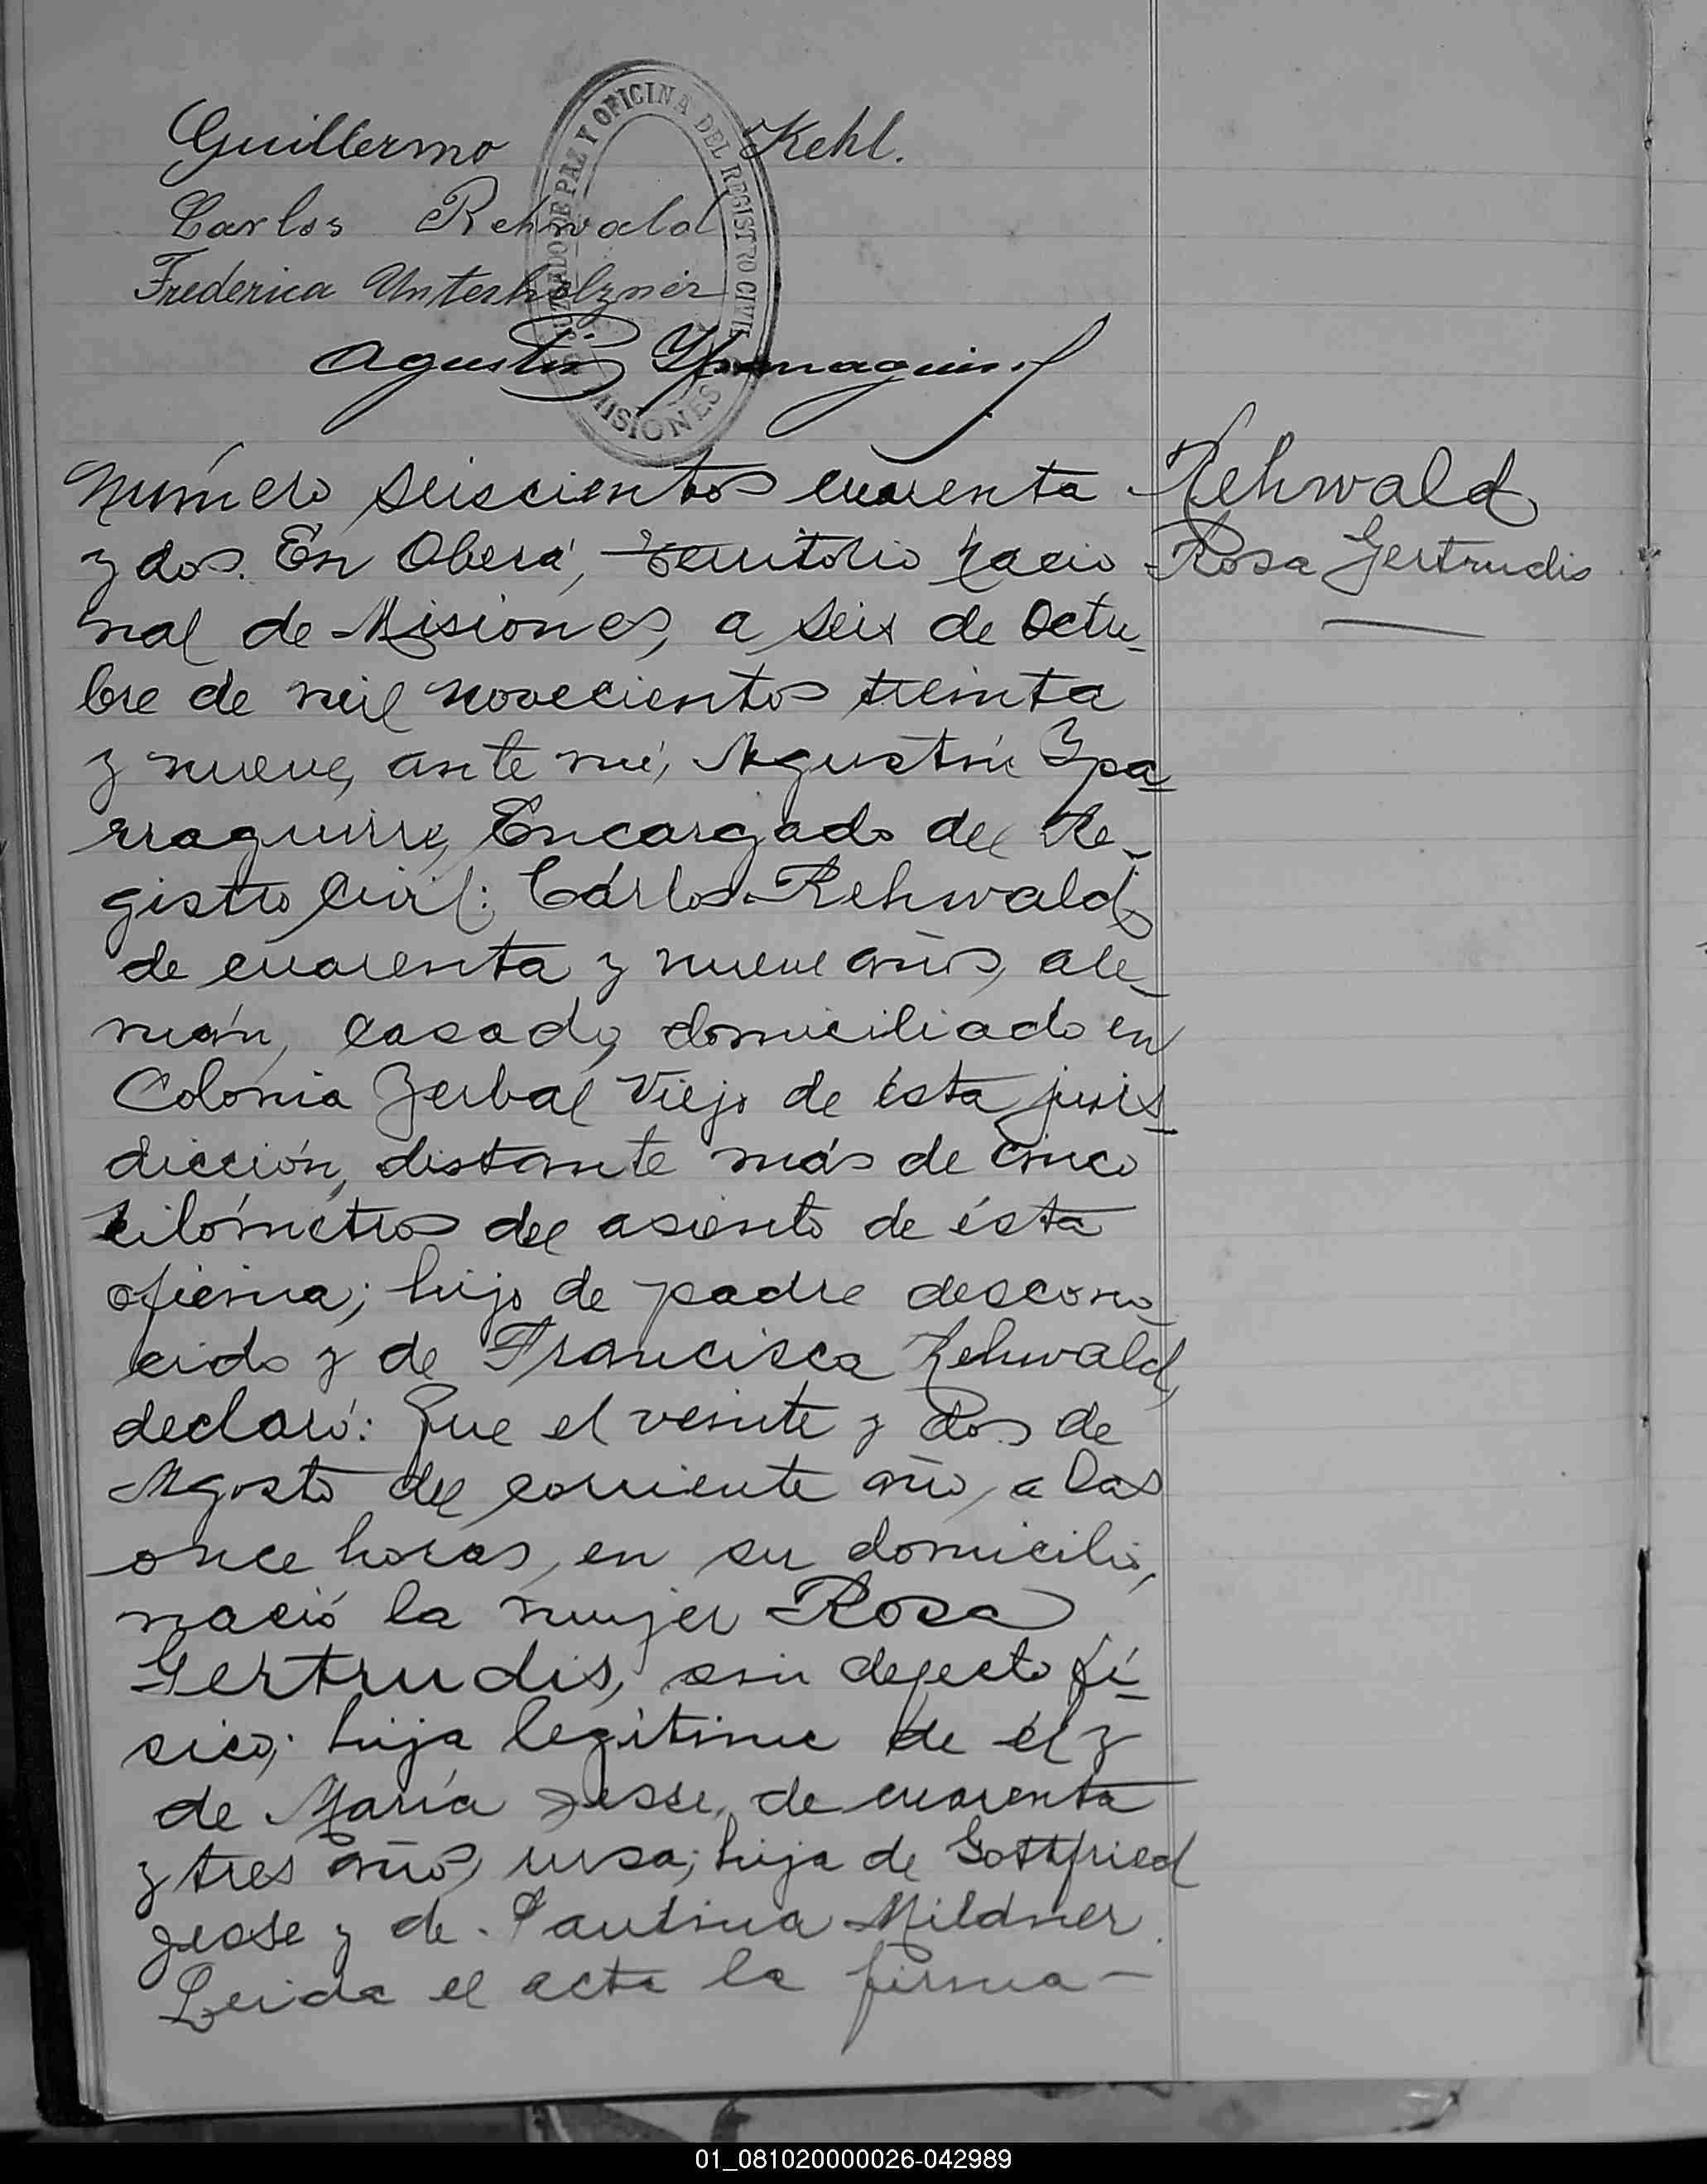 Guillermo Kehl.
Carlos Rehwald
Frederica Unterholzner
Agustín Yparraguirre
JUZGADO DE PAZ Y OFICINA DEL REGISTRO CIVIL
MISIONES
Número seiscientos cuarenta
y dos. En Oberá, Territorio Nacio
nal de Misiones, a seis de Octu-
bre de mil novecientos treinta
y nueve, ante mí, Agustín Ypa-
rraguirre, Encargado del Re-
gistro Civil: Cárlos Rehwald,
de cuarenta y nueve años, ale-
mán, casado, domiciliado en
Colonia Yerbal Viejo de ésta juris-
dicción, distante más de cinco
kilómetros del asiento de ésta
oficina; hijo de padre descono-
cido y de Francisca Rehwald,
declaró: Que el veinte y dos de
Agosto del corriente año, a las
once horas, en su domicilio,
nació la mujer Rosa
Gertrudis, sin defecto fí-
sico; hija legítima de él y
de María Jesse, de cuarenta
y tres años, rusa; hija de Gottfried
Jesse y de Paulina Mildner.
Leida el acta la firma-
Rehwald
Rosa Gertrudis
01_081020000026-042989